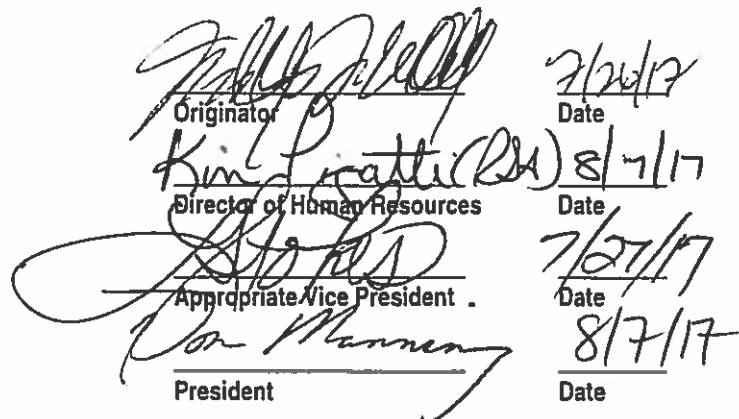 7/26/17
Originator Date
Kim (RSA) 8/7/17
Director of Human Resources Date
7/27/17
Appropriate Vice President . Date
Don 8/7/17
President Date